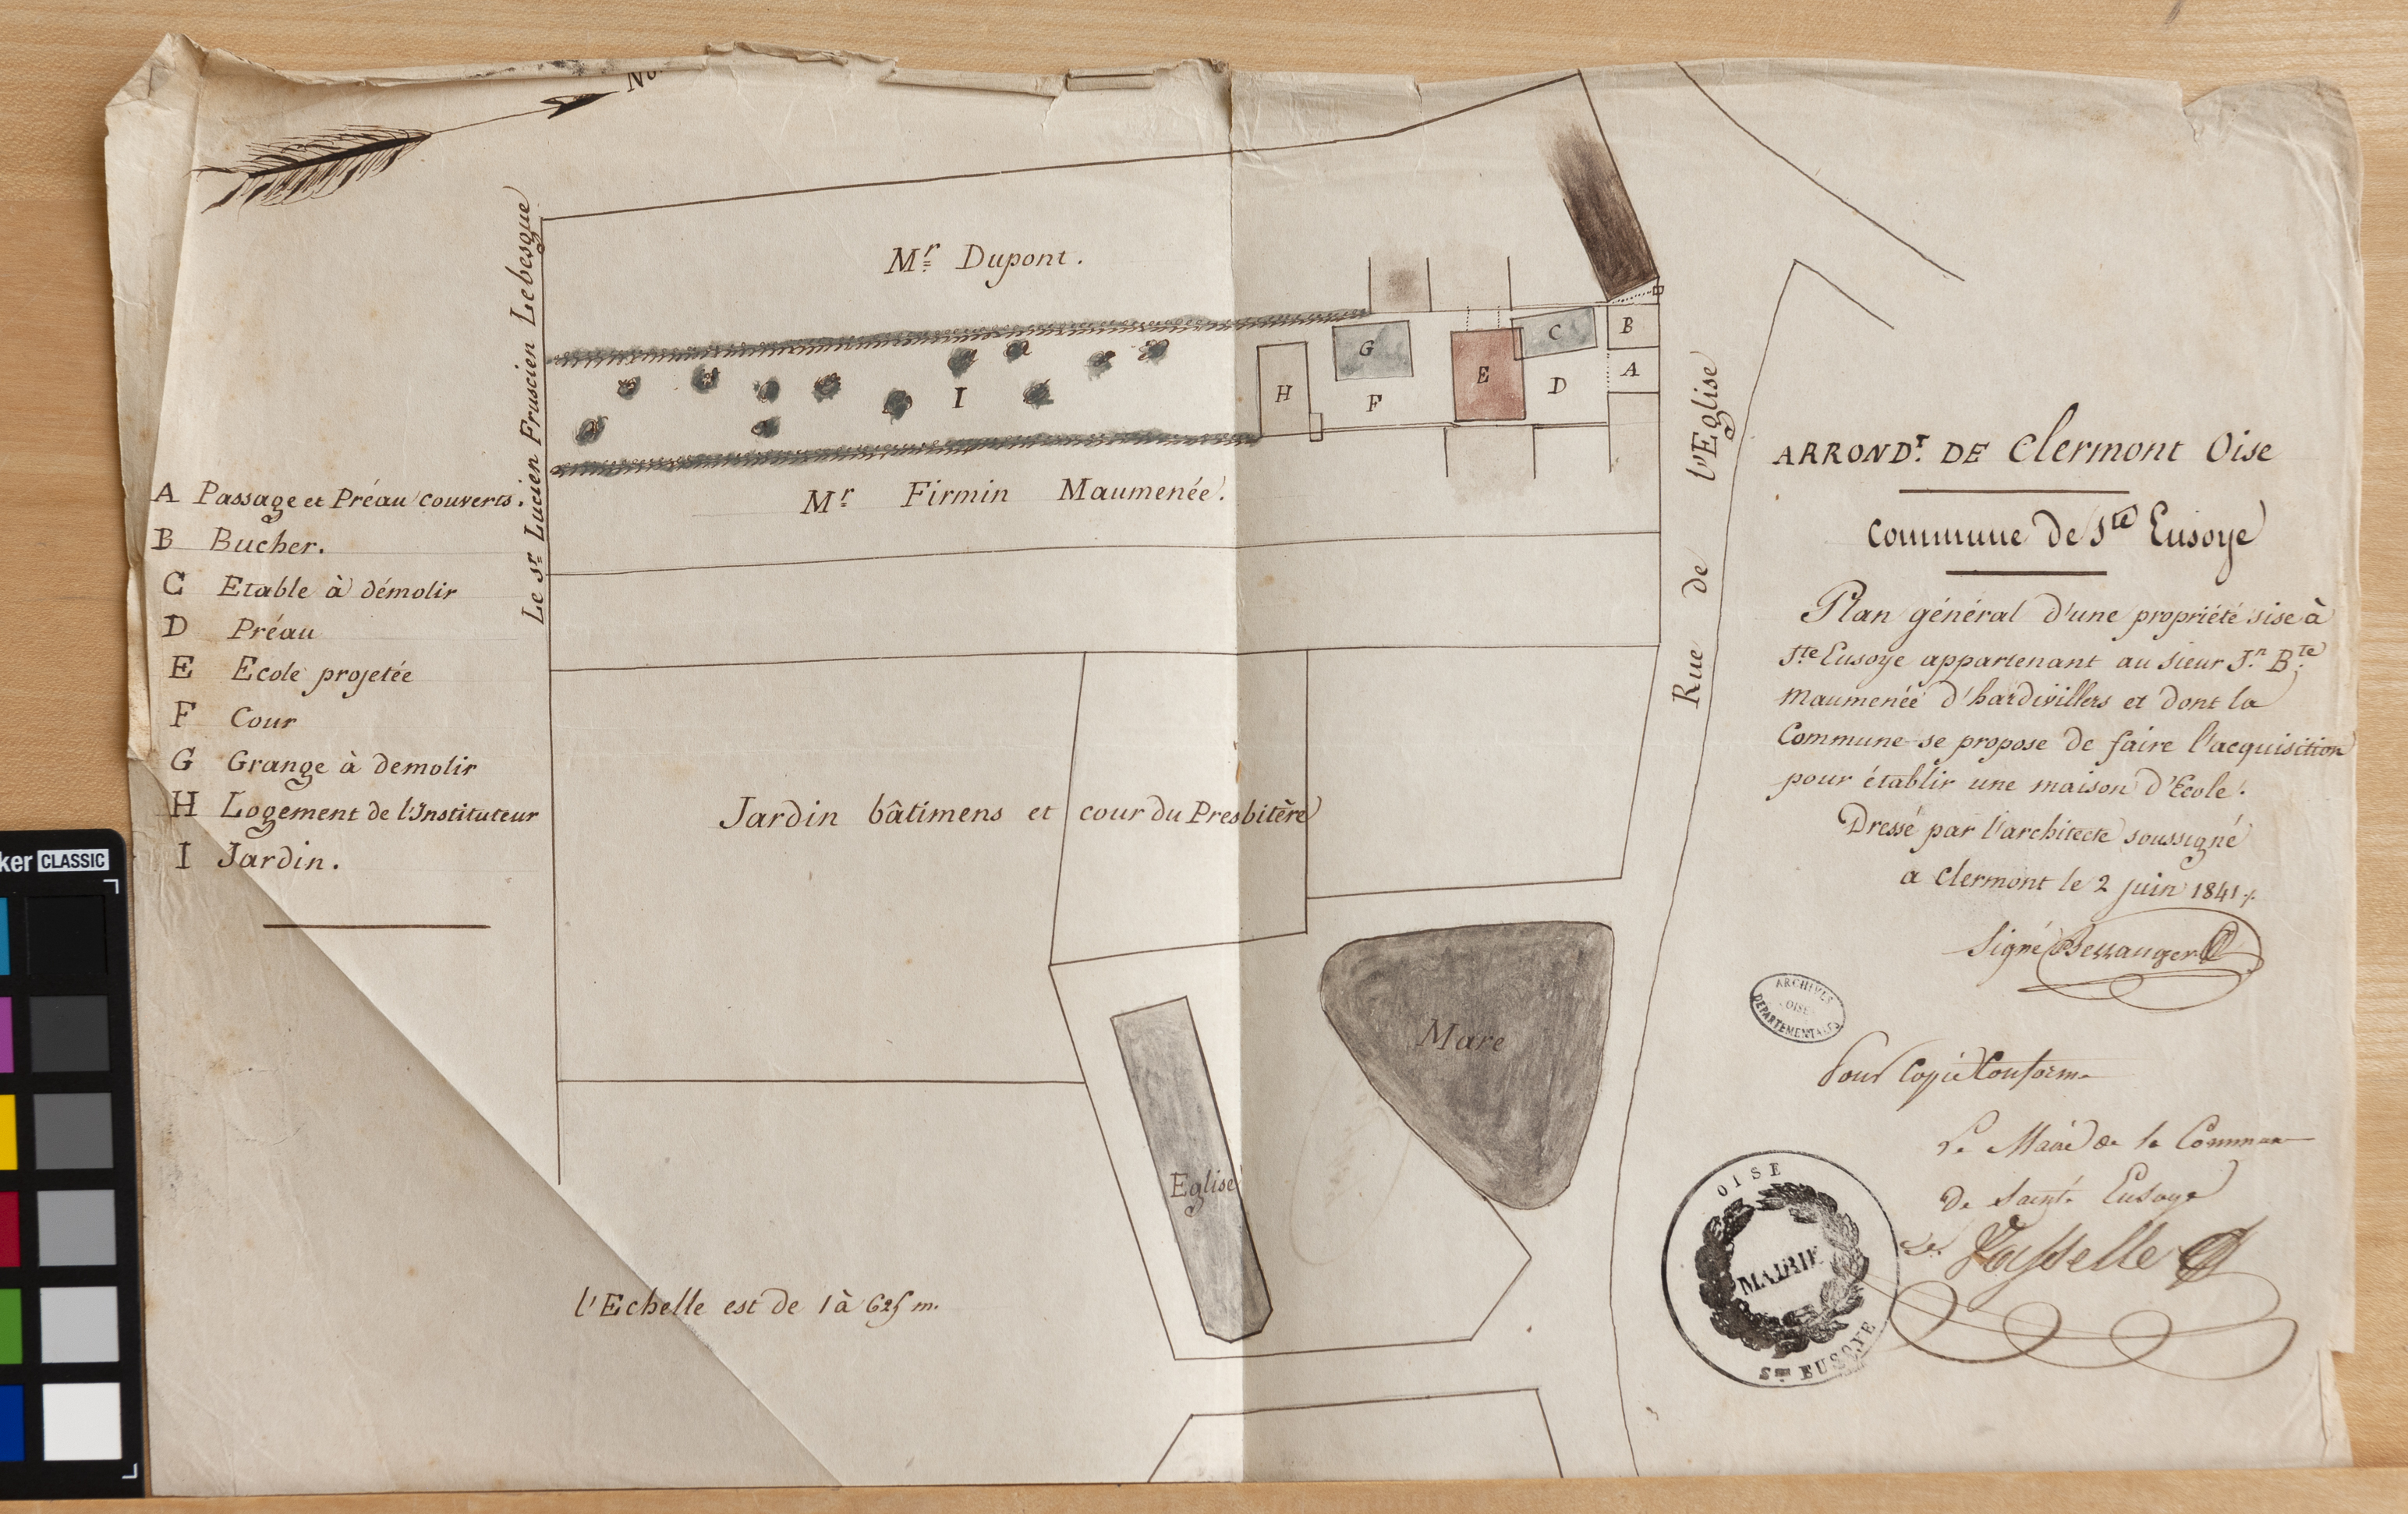 Mr Dupont.
Le sr Lucien Fruscien Lebesque
G
C
B
H
F
E
D
A
I
Mr Firmin Maumenée.
Rue de l'Eglise
A Passage et Préau couverts.
B Bucher.
C Etable à démolir
D Préau
E Ecole projetée
F Cour
G Grange à demolir
H Logement de l'Instituteur
I Jardin.
Jardin bâtimens et cour du Presbitère
Mare
Eglise
l'Echelle est de 1 à 625 m.
ARRONDT. DE Clermont Oise
Commune de Ste Eusoye
Plan général d'une propriété sise à
Ste Eusoye appartenant au sieur Jn. Bte.
Maumenée d'hardivillers et dont la
Commune se propose de faire l'acquisition
pour établir une maison d'Ecole.
Dressé par l'architecte soussigné
a Clermont le 2 juin 1841.
Signé
ARCHIVES
OISE
DÉPARTEMENTALES
Pour Copie Conforme
Le Maire de la Commune
De Sainte Eusoye
OISE
MAIRIE
Ste EUSOYE
ker CLASSIC